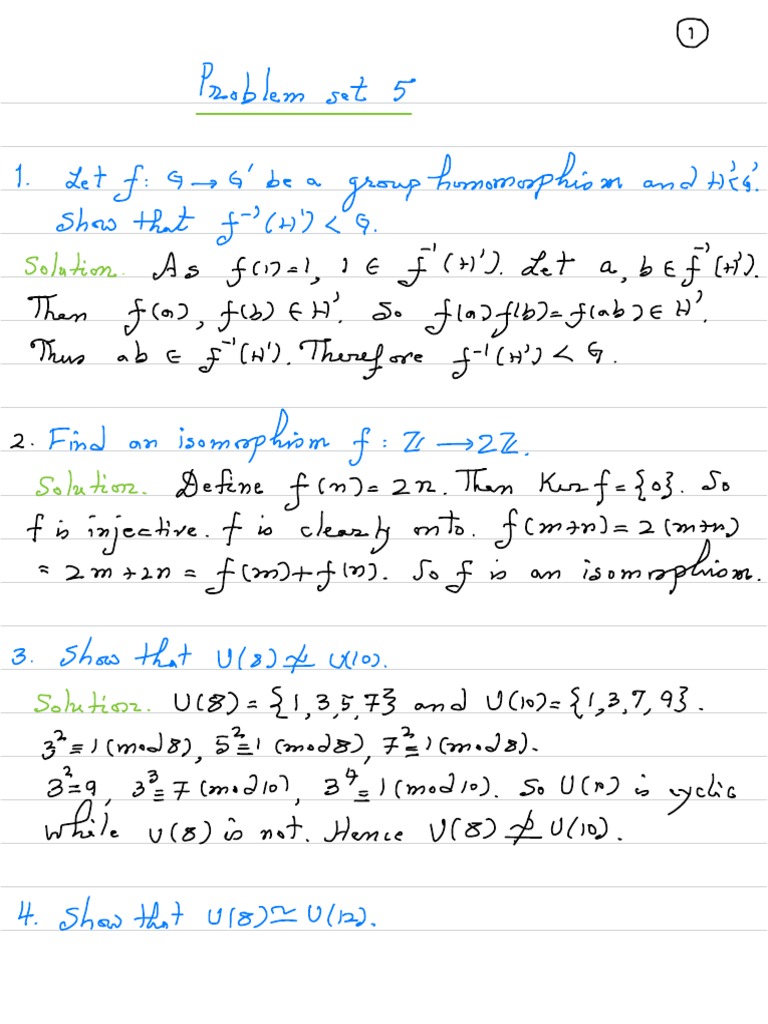 1
Problem set 5
1. Let f: G → G' be a group homomorphism and H' < G'.
Show that f⁻¹(H') < G.
Solution. As f(1)=1, 1 ∈ f⁻¹(H'). Let a, b ∈ f⁻¹(H').
Then f(a), f(b) ∈ H'. So f(a)f(b) = f(ab) ∈ H'.
Thus ab ∈ f⁻¹(H'). Therefore f⁻¹(H') < G.
2. Find an isomorphism f: ℤ → 2ℤ.
Solution. Define f(n) = 2n. Then Ker f = {0}. So
f is injective. f is clearly onto. f(m+n) = 2(m+n)
= 2m+2n = f(m)+f(n). So f is an isomorphism.
3. Show that U(8) ≄ U(10).
Solution. U(8) = {1,3,5,7} and U(10) = {1,3,7,9}.
3² ≡ 1 (mod 8), 5² ≡ 1 (mod 8), 7² ≡ 1 (mod 8).
3² = 9, 3³ ≡ 7 (mod 10), 3⁴ ≡ 1 (mod 10). So U(n) is cyclic
while U(8) is not. Hence U(8) ≄ U(10).
4. Show that U(8) ≃ U(12).